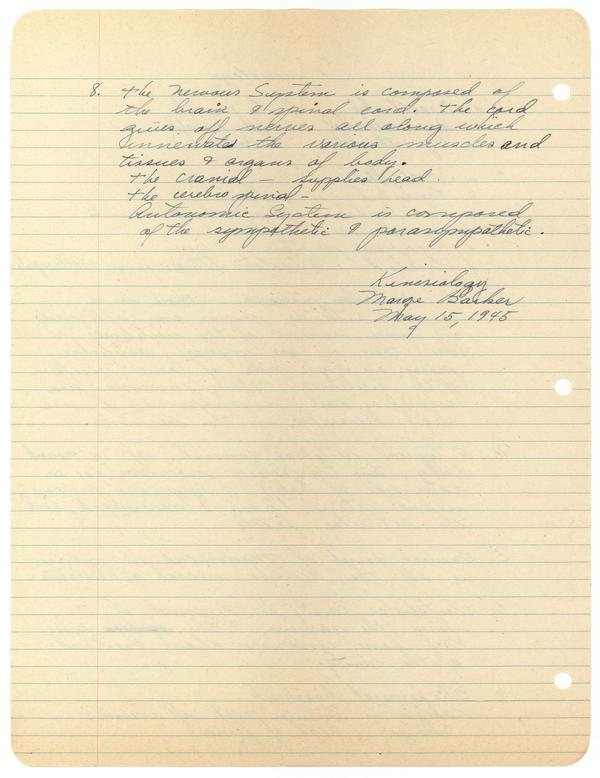 8. The Nervous System is composed of
the brain & spinal cord. The cord
gives off nerves all along which
innervates the various muscles and
tissues & organs of body.
The cranial – supplies head.
The cerebro spinal –
Autonomic System is composed
of the sympathetic & parasympathetic.
Kinesiology
Marge Barker
May 15, 1945